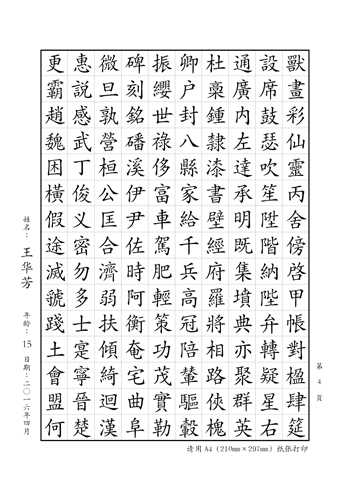 獸畫彩仙靈丙舍傍啓甲帳對楹肆筵
設席鼓瑟吹笙陞階納陛弁轉疑星右
通廣內左達承明既集墳典亦聚群英
杜稾鍾隸漆書壁經府羅將相路俠槐
卿户封八縣家給千兵高冠陪輦驅轂
振纓世祿侈富車駕肥輕策功茂實勒
碑刻銘磻溪伊尹佐時阿衡奄宅曲阜
微旦孰營桓公匡合濟弱扶傾綺迴漢
惠説感武丁俊义密勿多士寔寧晉楚
更霸趙魏困橫假途滅虢踐土會盟何
姓名：王华芳 年龄：15 日期：二〇一六年四月
第 4 页
请用A4（210mm×297mm）纸张打印